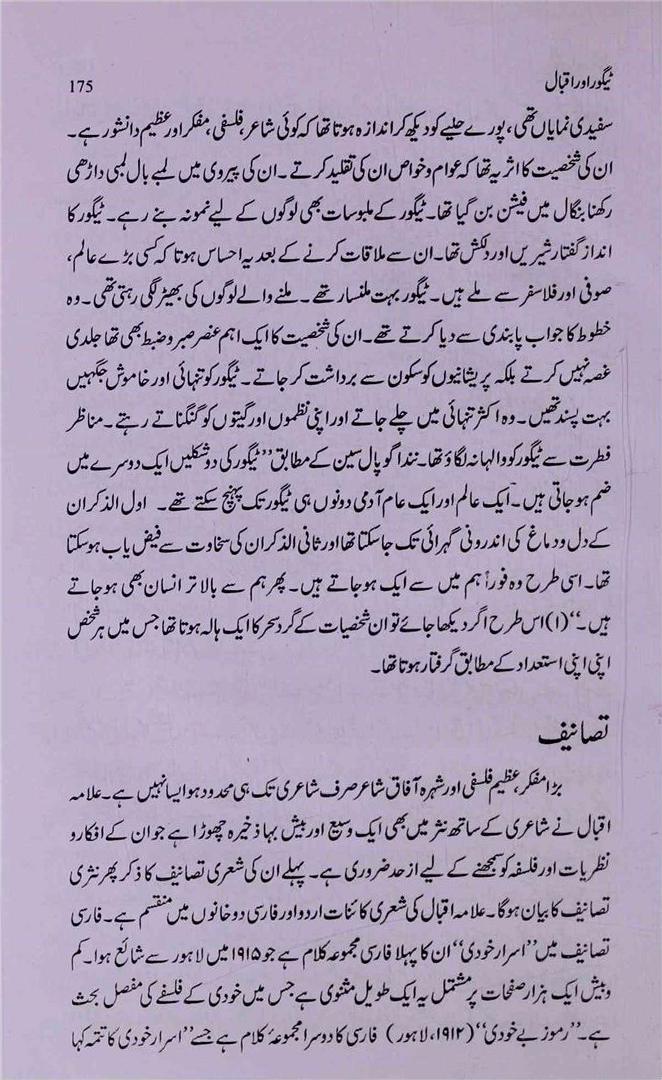 ٹیگور اور اقبال 175
سفیدی نمایاں تھی، پورے حلیے کو دیکھ کر اندازہ ہوتا تھا کہ کوئی شاعر، فلسفی، مفکر اور عظیم دانشور ہے۔
ان کی شخصیت کا اثر یہ تھا کہ عوام و خواص ان کی تقلید کرتے۔ ان کی پیروی میں لمبے بال لمبی داڑھی
رکھنا بنگال میں فیشن بن گیا تھا۔ ٹیگور کے ملبوسات بھی لوگوں کے لیے نمونہ بنے رہے۔ ٹیگور کا
انداز گفتار شیریں اور دلکش تھا۔ ان سے ملاقات کرنے کے بعد یہ احساس ہوتا کہ کسی بڑے عالم،
صوفی اور فلاسفر سے ملے ہیں۔ ٹیگور بہت ملنسار تھے۔ ملنے والے لوگوں کی بھیڑ لگی رہتی تھی۔ وہ
خطوط کا جواب پابندی سے دیا کرتے تھے۔ ان کی شخصیت کا ایک اہم عنصر صبر و ضبط بھی تھا جلدی
غصہ نہیں کرتے بلکہ پریشانیوں کو سکون سے برداشت کر جاتے۔ ٹیگور کو تنہائی اور خاموش جگہیں
بہت پسند تھیں۔ وہ اکثر تنہائی میں چلے جاتے اور اپنی نظموں اور گیتوں کو گنگناتے رہتے۔ مناظر
فطرت سے ٹیگور کو والہانہ لگاؤ تھا۔ نندا گوپال سین کے مطابق ”ٹیگور کی دو شکلیں ایک دوسرے میں
ضم ہو جاتی ہیں۔ ایک عالم اور ایک عام آدمی دونوں ہی ٹیگور تک پہنچ سکتے تھے۔ اول الذکر ان
کے دل و دماغ کی اندرونی گہرائی تک جا سکتا تھا اور ثانی الذکر ان کی سخاوت سے فیض یاب ہو سکتا
تھا۔ اسی طرح وہ فوراً ہم میں سے ایک ہو جاتے ہیں۔ پھر ہم سے بالاتر انسان بھی ہو جاتے
ہیں۔“(۱) اس طرح اگر دیکھا جائے تو ان شخصیات کے گرد سحر کا ایک ہالہ ہوتا تھا جس میں ہر شخص
اپنی اپنی استعداد کے مطابق گرفتار ہوتا تھا۔
تصانیف
بڑا مفکر، عظیم فلسفی اور شہرہ آفاق شاعر صرف شاعری تک ہی محدود ہو ایسا نہیں ہے۔ علامہ
اقبال نے شاعری کے ساتھ نثر میں بھی ایک وسیع اور بیش بہا ذخیرہ چھوڑا ہے جو ان کے افکار و
نظریات اور فلسفہ کو سمجھنے کے لیے از حد ضروری ہے۔ پہلے ان کی شعری تصانیف کا ذکر پھر نثری
تصانیف کا بیان ہوگا۔ علامہ اقبال کی شعری کائنات اردو اور فارسی دو خانوں میں منقسم ہے۔ فارسی
تصانیف میں ”اسرار خودی“ ان کا پہلا فارسی مجموعہ کلام ہے جو ۱۹۱۵ میں لاہور سے شائع ہوا۔ کم
و بیش ایک ہزار صفحات پر مشتمل یہ ایک طویل مثنوی ہے جس میں خودی کے فلسفے کی مفصل بحث
ہے۔ ”رموز بے خودی“ (۱۹۱۲، لاہور) فارسی کا دوسرا مجموعۂ کلام ہے جسے ”اسرار خودی کا تتمہ کہا